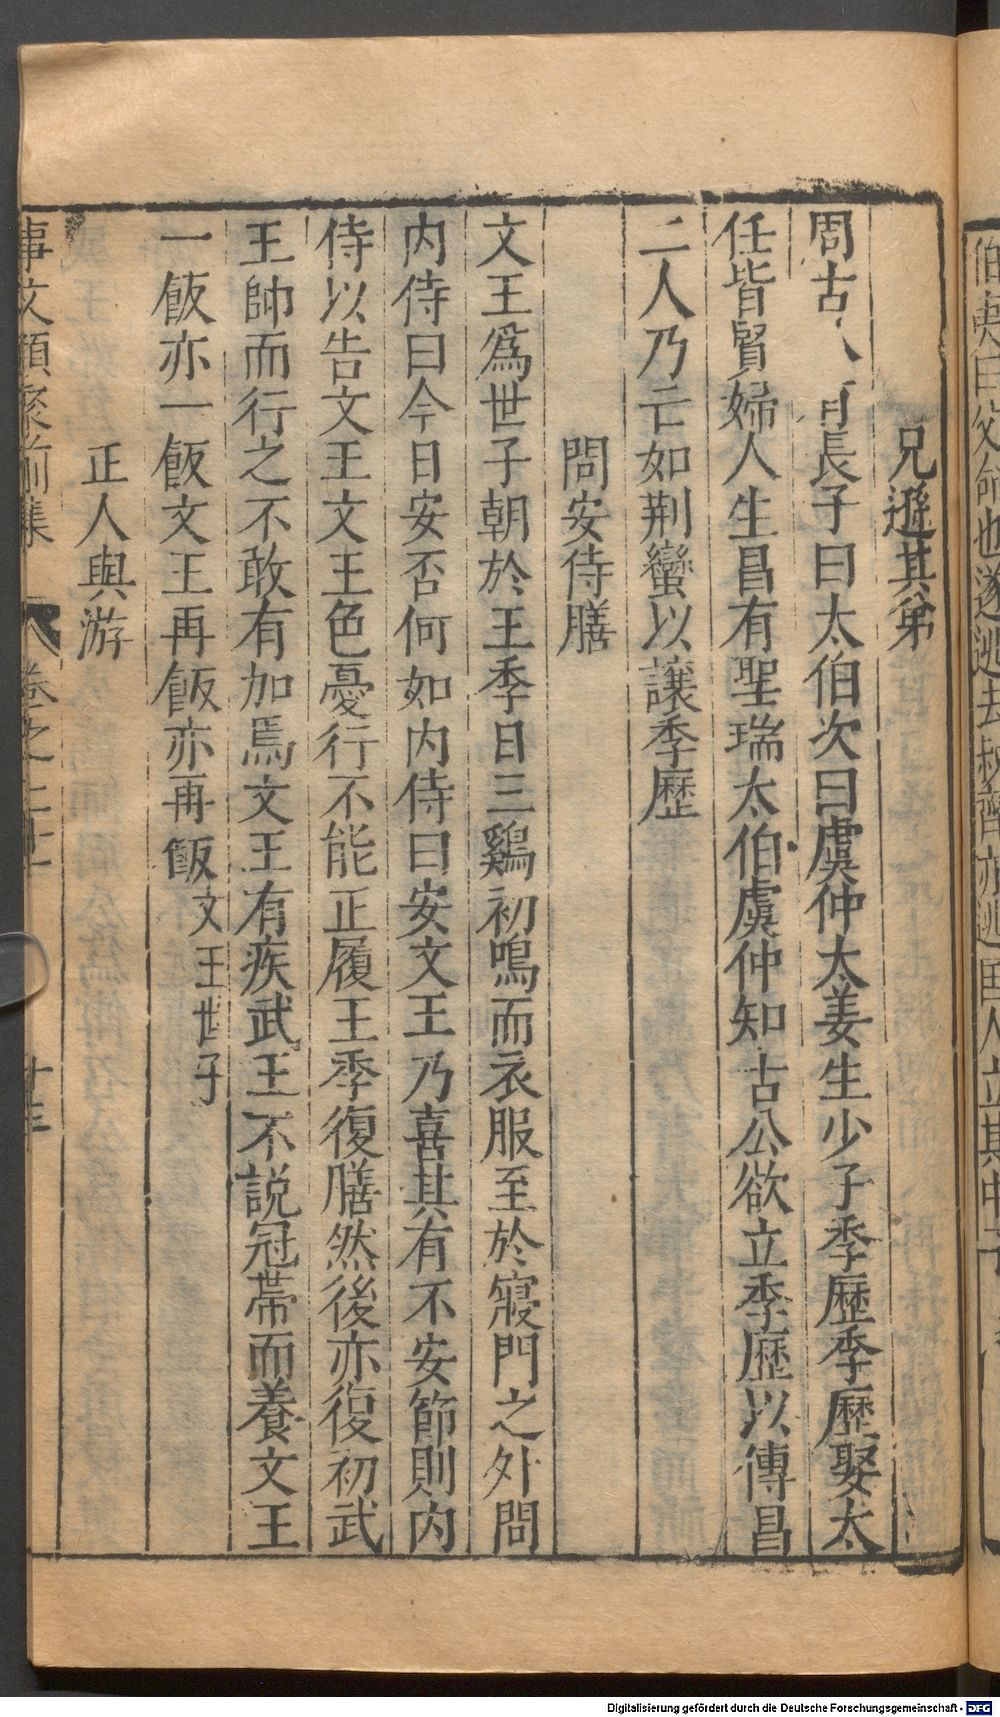 伯夷曰父命也遂逃去叔齊亦逃囯人立其中子
兄遜其弟
周古公有長子曰太伯次曰虞仲太姜生少子季歷季歷娶太
任皆賢婦人生昌有聖瑞太伯虞仲知古公欲立季歷以傳昌
二人乃亡如荆蠻以讓季歷
問安侍膳
文王爲世子朝於王季日三鷄初鳴而衣服至於寢門之外問
内侍曰今日安否何如内侍曰安文王乃喜其有不安節則内
侍以告文王文王色憂行不能正履王季復膳然後亦復初武
王帥而行之不敢有加焉文王有疾武王不說冠帶而養文王
一飯亦一飯文王再飯亦再飯文王世子
正人與游
事文類聚前集 卷之二十 十三
Digitalisierung gefördert durch die Deutsche Forschungsgemeinschaft - DFG